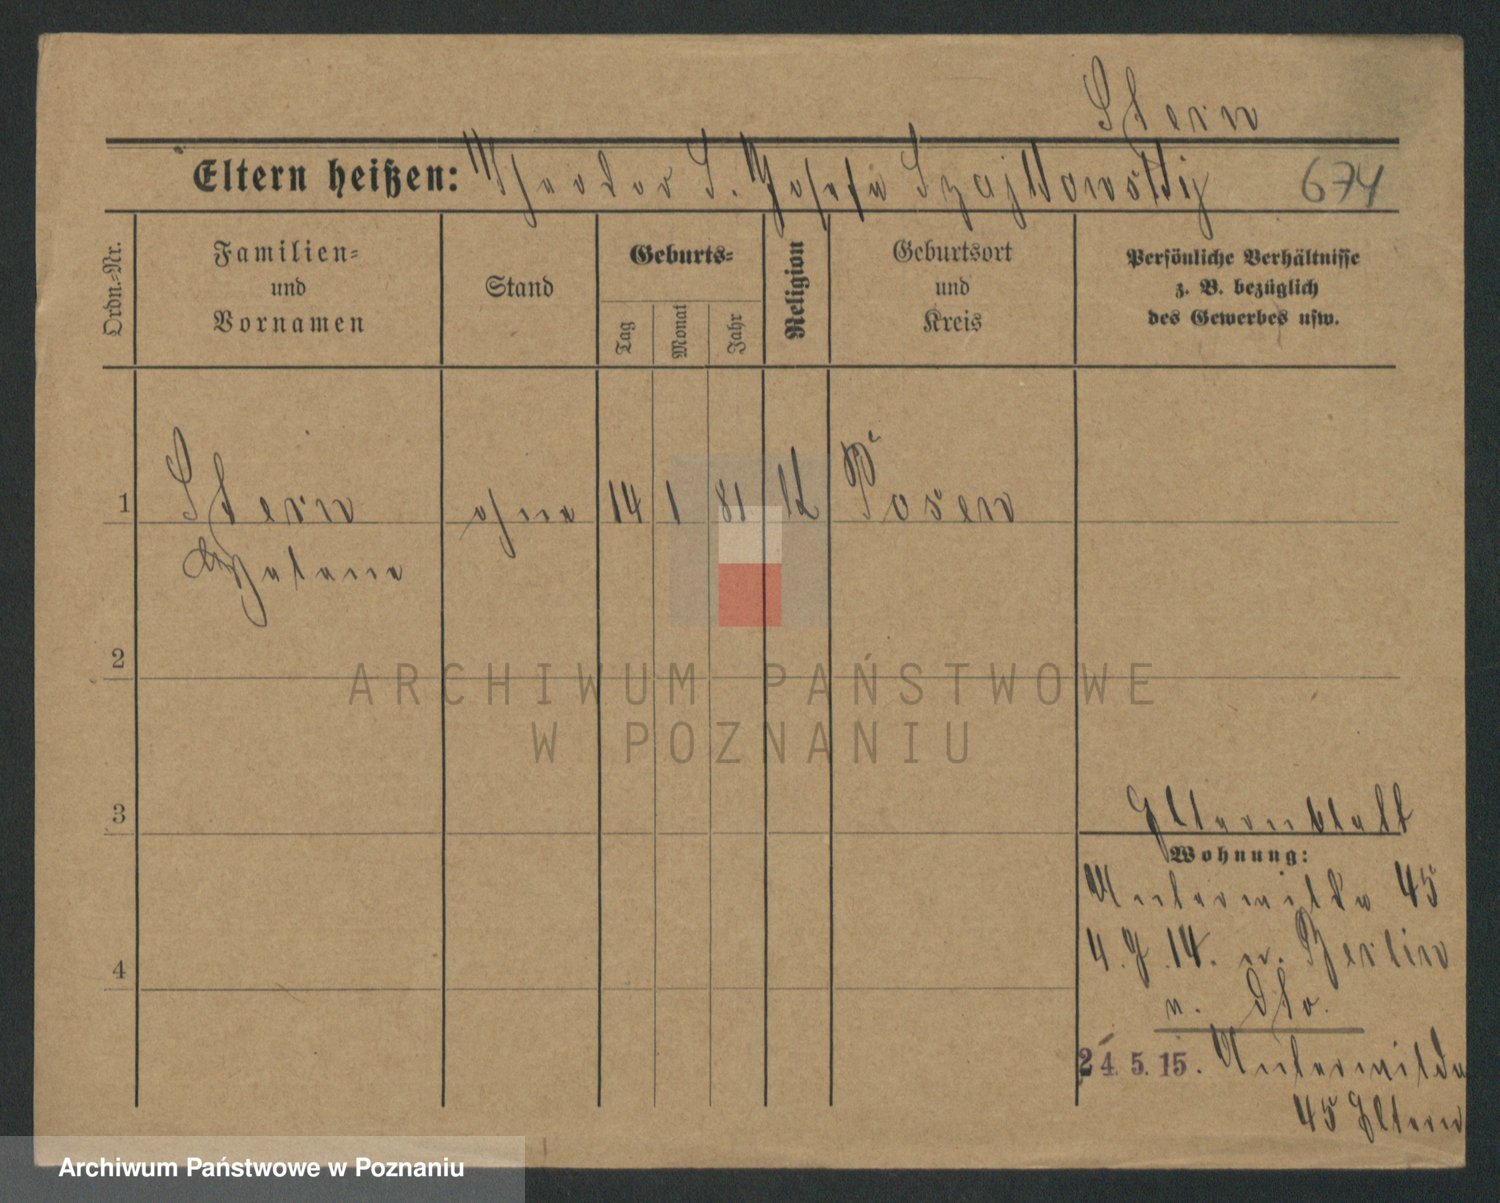 Stern
Eltern heißen: Theodor S. Josefa Szajkowski
674
Ordn.-Nr.
Familien-
und
Vornamen
Stand
Geburts-
Tag
Monat
Jahr
Religion
Geburtsort
und
Kreis
Persönliche Verhältnisse
z. B. bezüglich
des Gewerbes usw.
1
Stern
ohne
14
1
81
Posen
Helene
2
ARCHIWUM PAŃSTWOWE
W POZNANIU
3
Elternblatt
Wohnung:
Unterwilda 45
4
4. 14. n. Berlin
n. dto.
24. 5. 15. Unterwilda
45 Eltern
Archiwum Państwowe w Poznaniu